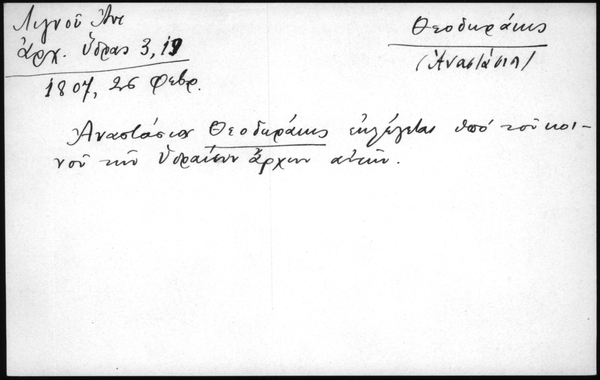 Λιγνοῦ Ἀντ
ἀρχ. Ὕδρας 3, 19
1807, 26 Φεβρ.
Θεοδωράκης
(Ἀναστάσιος)
Ἀναστάσιος Θεοδωράκης ἐκλέγεται ὑπό τοῦ κοι-
νοῦ τῶν Ὑδραίων ἄρχων αὐτῶν.